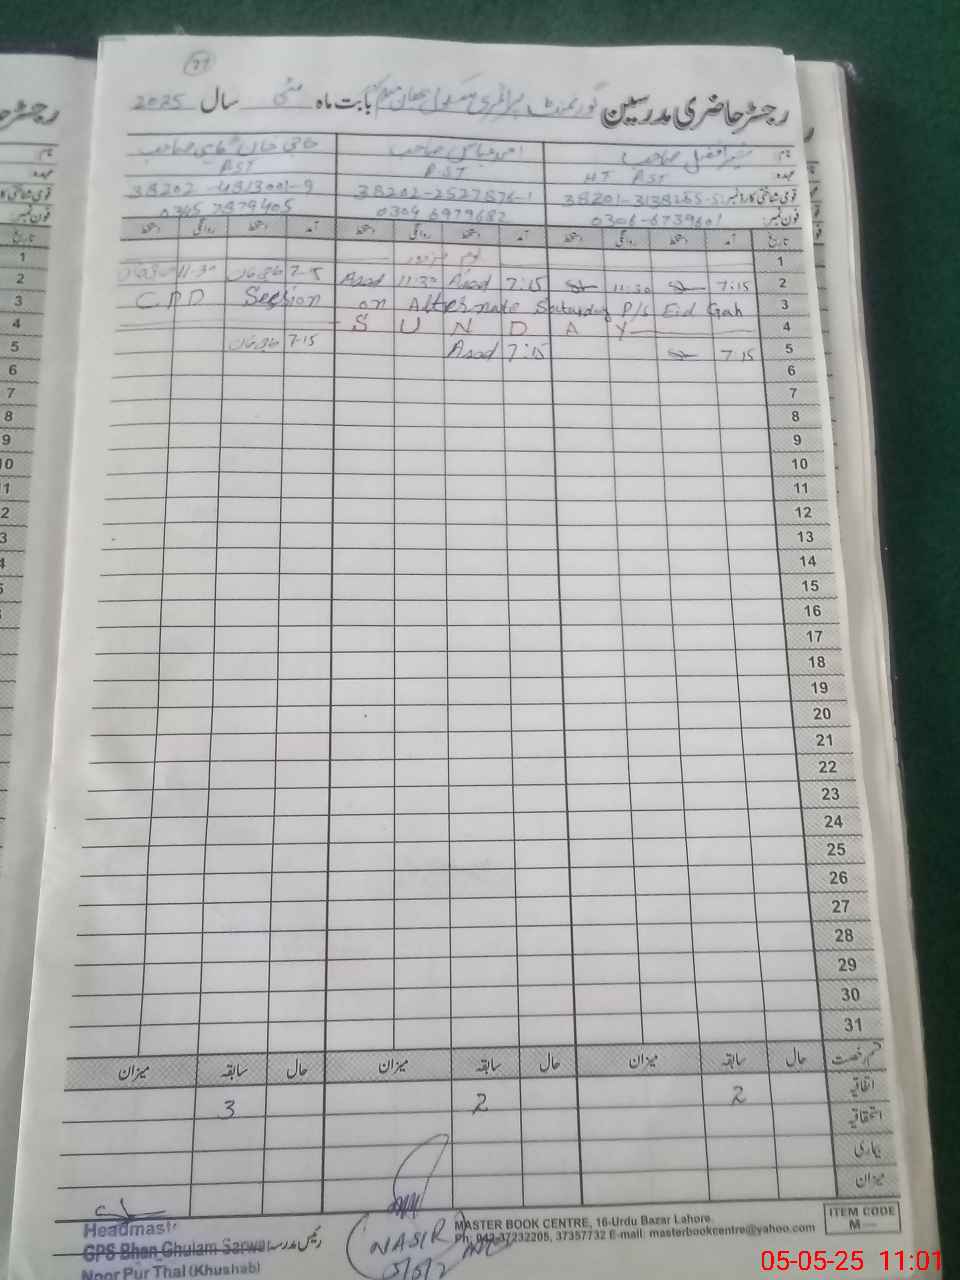 27
رجسٹر حاضری مدرسین گورنمنٹ پرائمری سکول بابت ماہ مئی سال 2025
نام
عہدہ HT PST PST PST
قومی شناختی کارڈ نمبر: 38201-3138265-5 38202-2527876-1 38202-4813001-9
فون نمبر: 0306-6739601 0304 6979682 0345 7879405
تاریخ آمد دستخط روانگی دستخط آمد دستخط روانگی دستخط آمد دستخط روانگی دستخط
1 یوم مزدور
2 7:15 11:30 7:15 Asad 11:30 Asad 7-15 11-30
3 CPD Session on Alternate Saturday P/s Eid Gah
4 S U N D A Y
5 7:15 7:15 Asad 7-15
6
7
8
9
10
11
12
13
14
15
16
17
18
19
20
21
22
23
24
25
26
27
28
29
30
31
قسم رخصت حال سابقہ میزان حال سابقہ میزان حال سابقہ میزان
اتفاقیہ 2 2 3
استحقاقیہ
بیماری
میزان
ITEM CODE
M
MASTER BOOK CENTRE, 16-Urdu Bazar Lahore.
Ph: 042-37232205, 37357732 E-mail: masterbookcentre@yahoo.com
رئیس مدرسہ
Headmaste
GPS Bhan Ghulam Sarwar
Noor Pur Thal (Khushab)
NASIR
05-05-25 11:01